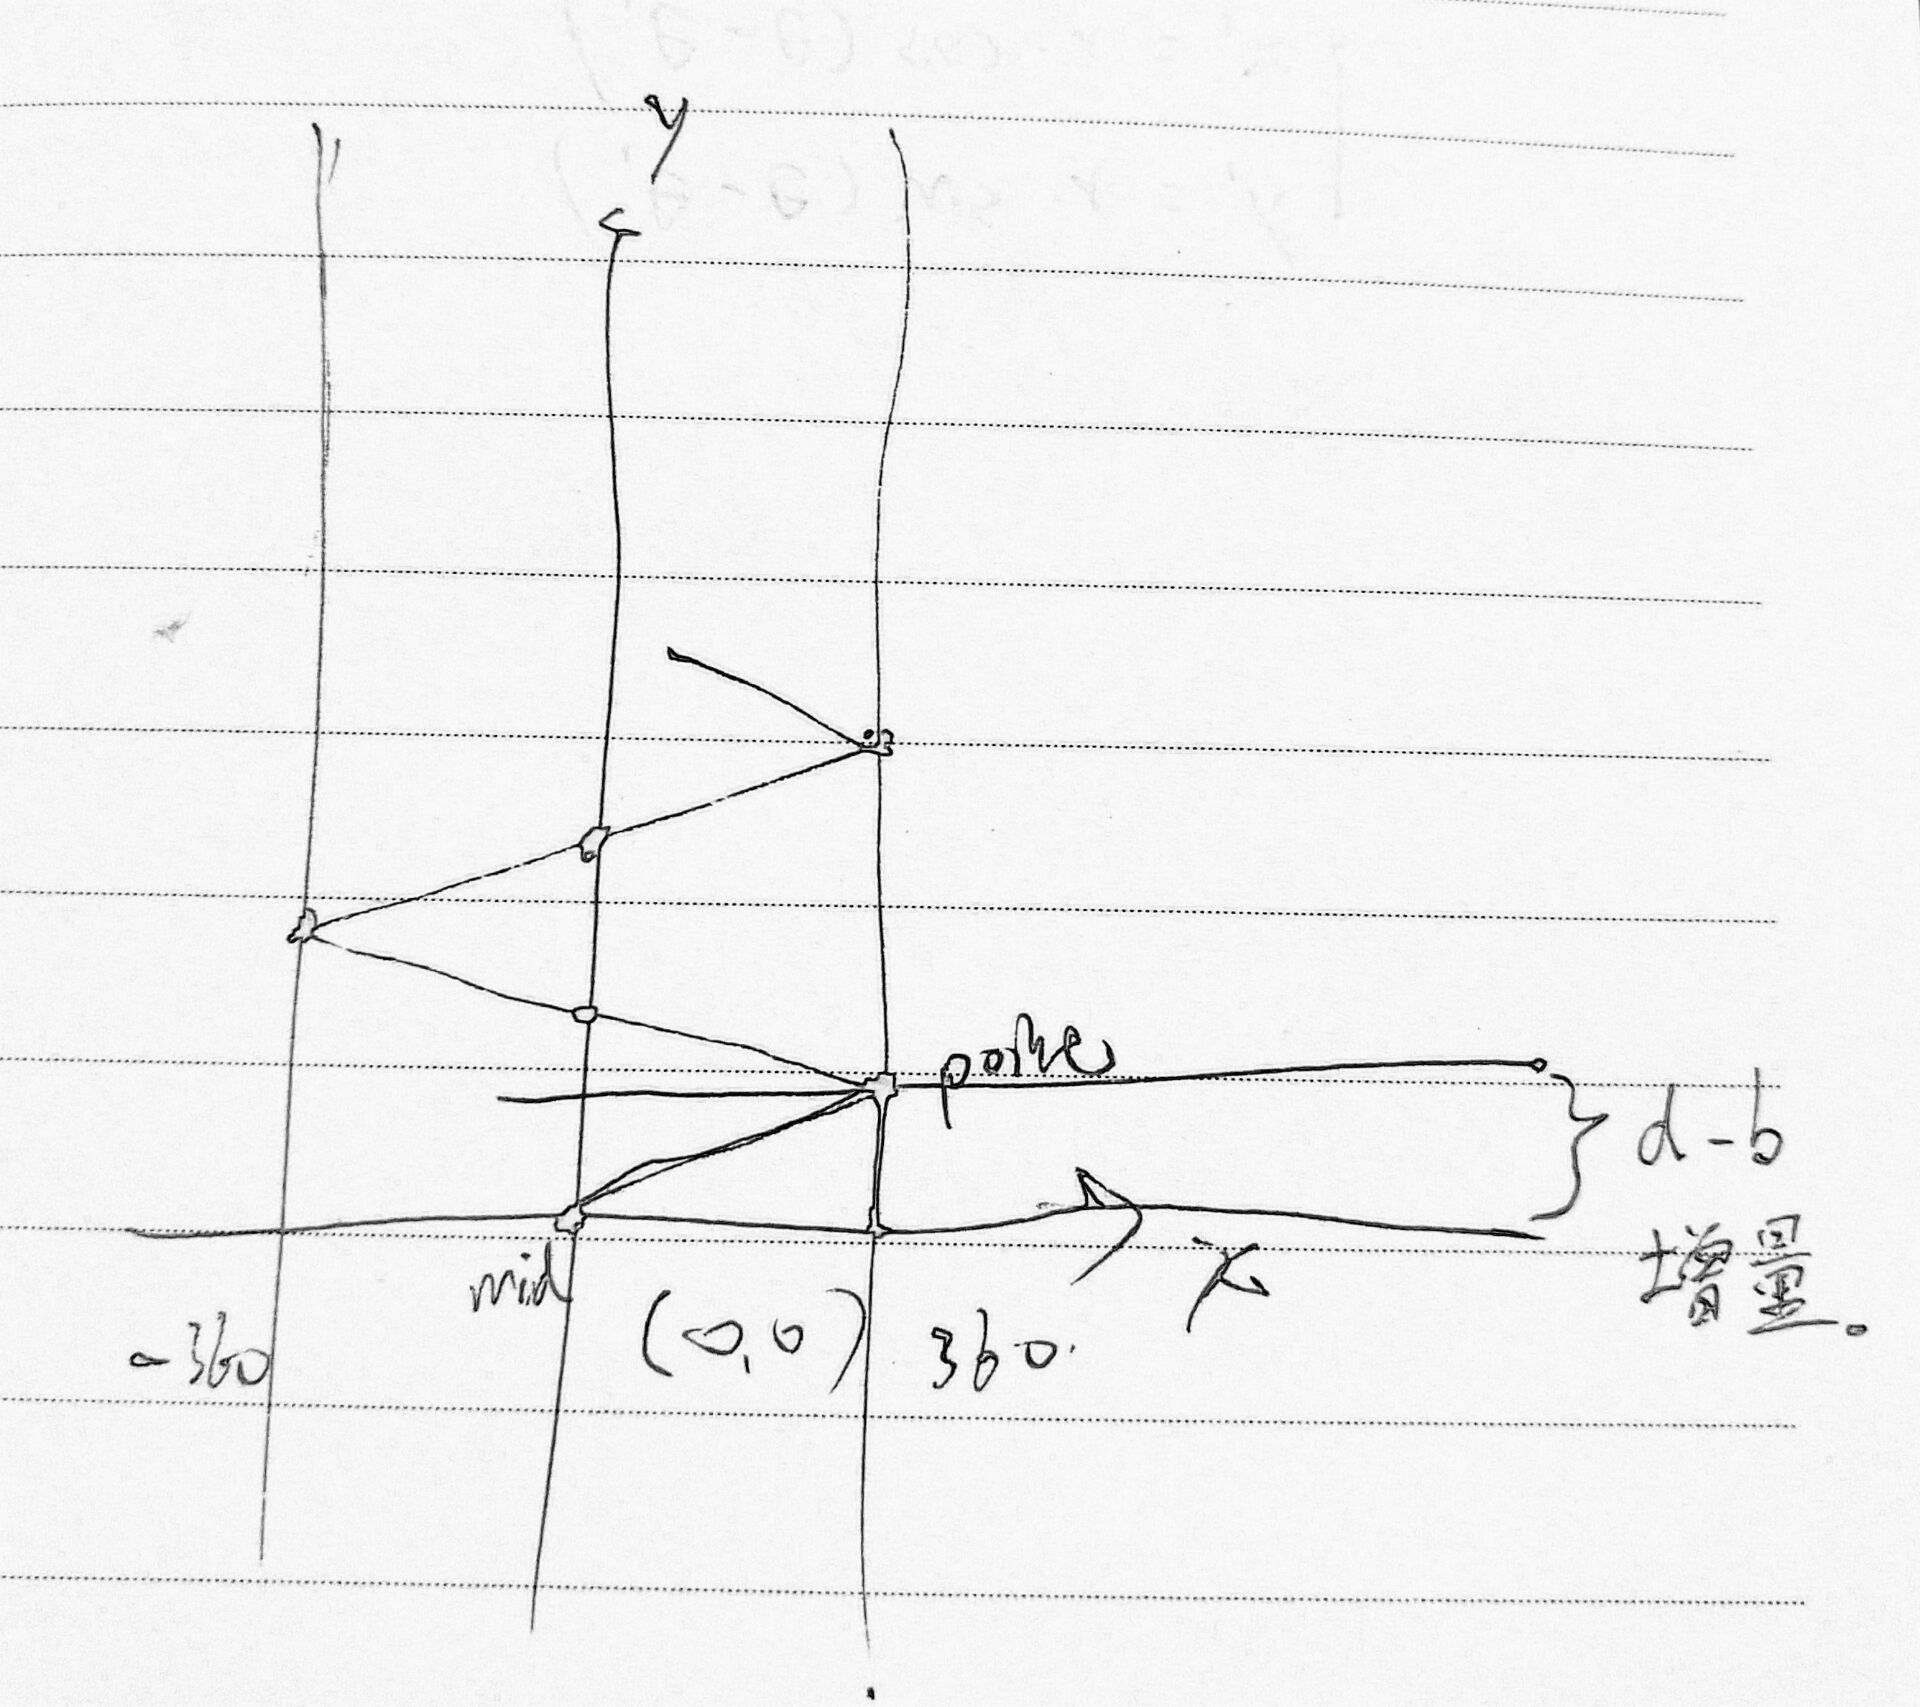 y
d-b
x
增量。
mid
(0,0)
-360
360.